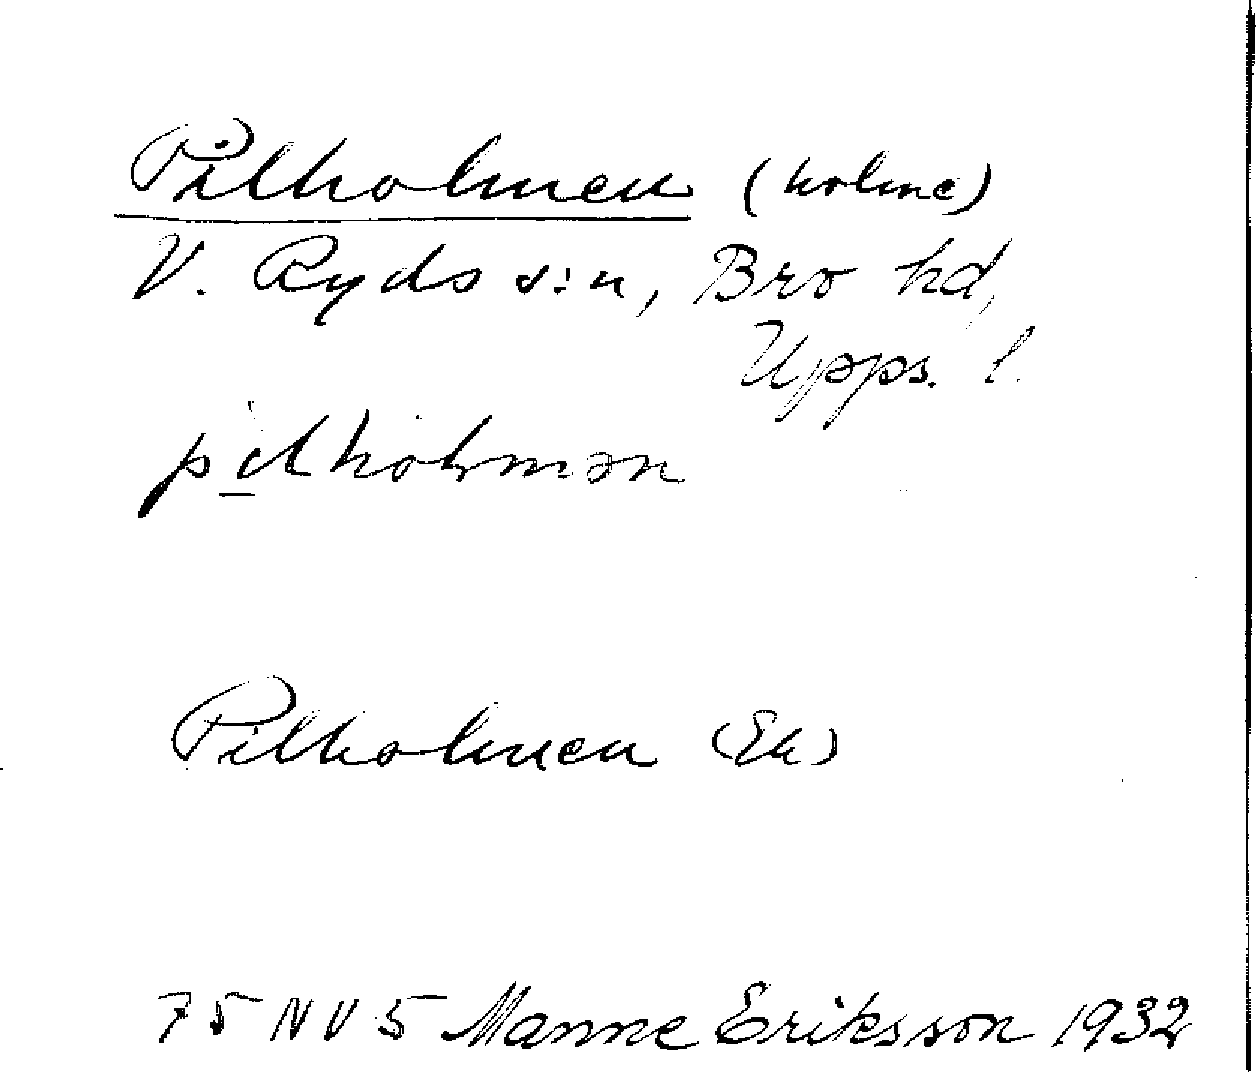 Pilholmen (holme)
V. Ryds s:n, Bro hd,
Upps. l.
Pilholmen (Ek)
75 NV 5 Manne Eriksson 1932